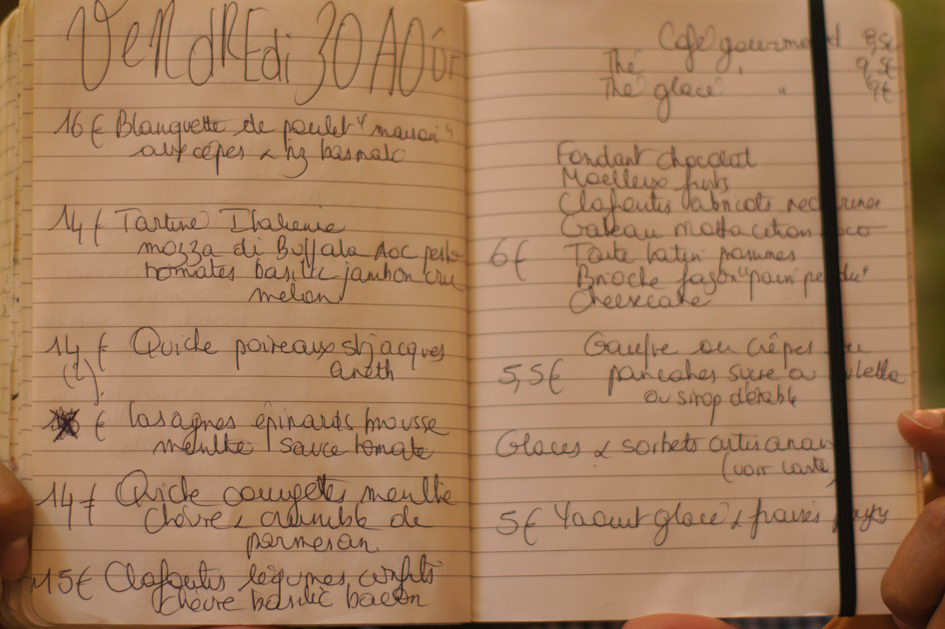 VeNdREdi 30 AOûT
16 € Blanquette de poulet "maison"
aux cèpes & riz basmati
14 € Tartine Italienne
mozza di Buffala roc pesto
tomates basilic jambon cru
melon
14 € Quiche poireaux st jacques
aneth
€ lasagnes épinards mousse
menthe sauce tomate
14 € Quiche courgettes menthe
chèvre & crumble de
parmesan
15€ Clafoutis légumes confits
chèvre basilic bacon
Café gourmand
Thé "
Thé glacé " 9€
Fondant chocolat
Moelleux fruits
Clafoutis abricots nectarines
Gateau matcha citron coco
6€ Tarte tatin pommes
Brioche façon "pain perdu"
Cheesecake
Gaufre ou crêpes ou
5,5€ pancakes sucre ou nutella
ou sirop d'érable
Glaces & sorbets artisanaux
(voir carte)
5€ Yaourt glacé & fraises pays